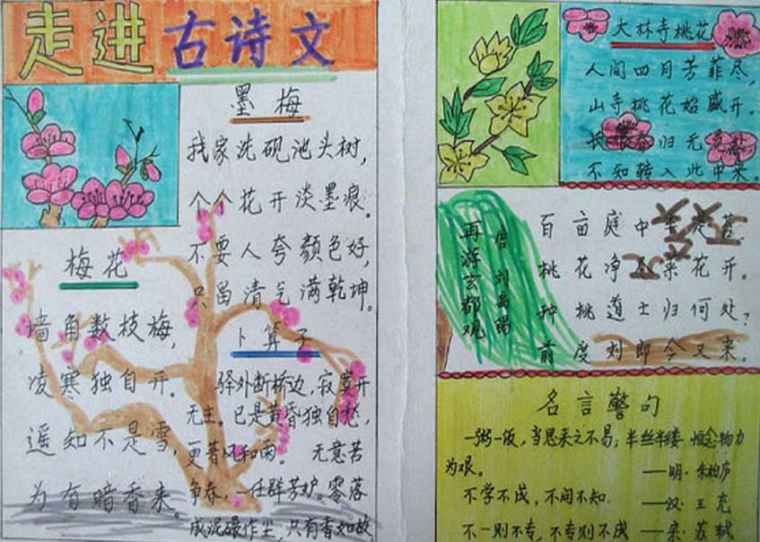 走进古诗文
墨梅
我家洗砚池头树，
个个花开淡墨痕。
不要人夸颜色好，
只留清气满乾坤。
梅花
墙角数枝梅，
凌寒独自开。
遥知不是雪，
为有暗香来。
卜算子
驿外断桥边，寂寞开
无主。已是黄昏独自愁，
更著风和雨。 无意苦
争春，一任群芳妒。零落
成泥碾作尘，只有香如故
大林寺桃花
人间四月芳菲尽，
山寺桃花始盛开。
长恨春归无觅处
不知转入此中来。
再游玄都观
唐 刘禹锡
百亩庭中半是苔
桃花净尽菜花开。
种桃道士归何处？
前度刘郎今又来。
名言警句
一粥一饭，当思来之不易；半丝半缕 恒念物力
为艰。 ——明·朱柏庐
不学不成，不问不知． ——汉·王充
不一则不专，不专则不成 ——宋·苏轼